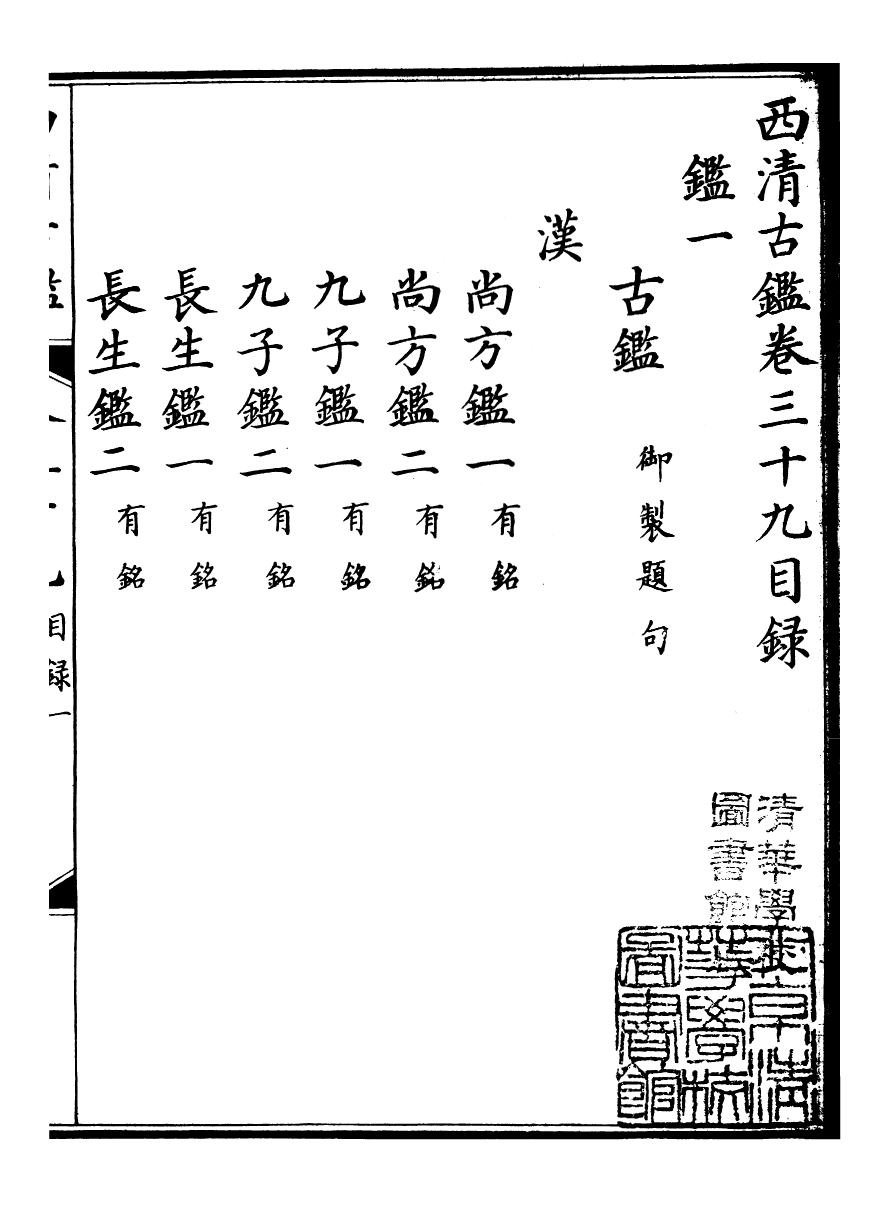 西清古鑑卷三十九目録
鑑一
古鑑 御製題句
漢
尚方鑑一 有銘
尚方鑑二 有銘
九子鑑一 有銘
九子鑑二 有銘
長生鑑一 有銘
長生鑑二 有銘
目録一
清華學
圖書館
北京清
華學校
圖書館